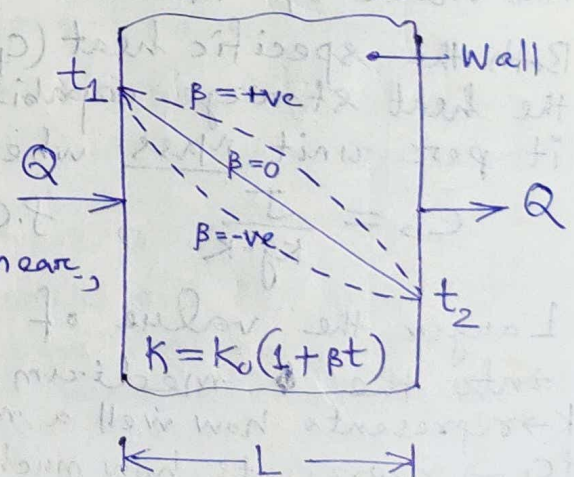 Wall
t1
β = +ve
β = 0
Q
Q
β = -ve
near,
t2
K = K0(1 + βt)
L